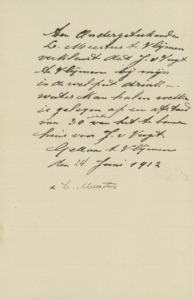 Den Ondergeteekenden
L. Meertens t. Vlijmen
verklaart dat J. v Vugt
te Vlijmen bij mijn
in de welput drink-
water kan halen welke
is gelegen op een afstand
van 30 van het te bouwen
huis van J. v Vugt.
Gedaan t. Vlijmen
den 14 Juni 1912
x L. Meertens